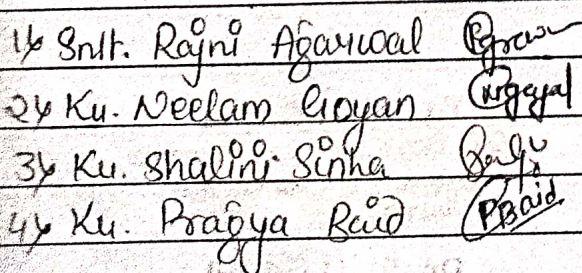 1) Smt. Rajni Agarwal
2) Ku. Neelam Goyan
3) Ku. Shalini Sinha
4) Ku. Pragya Baid PBaid